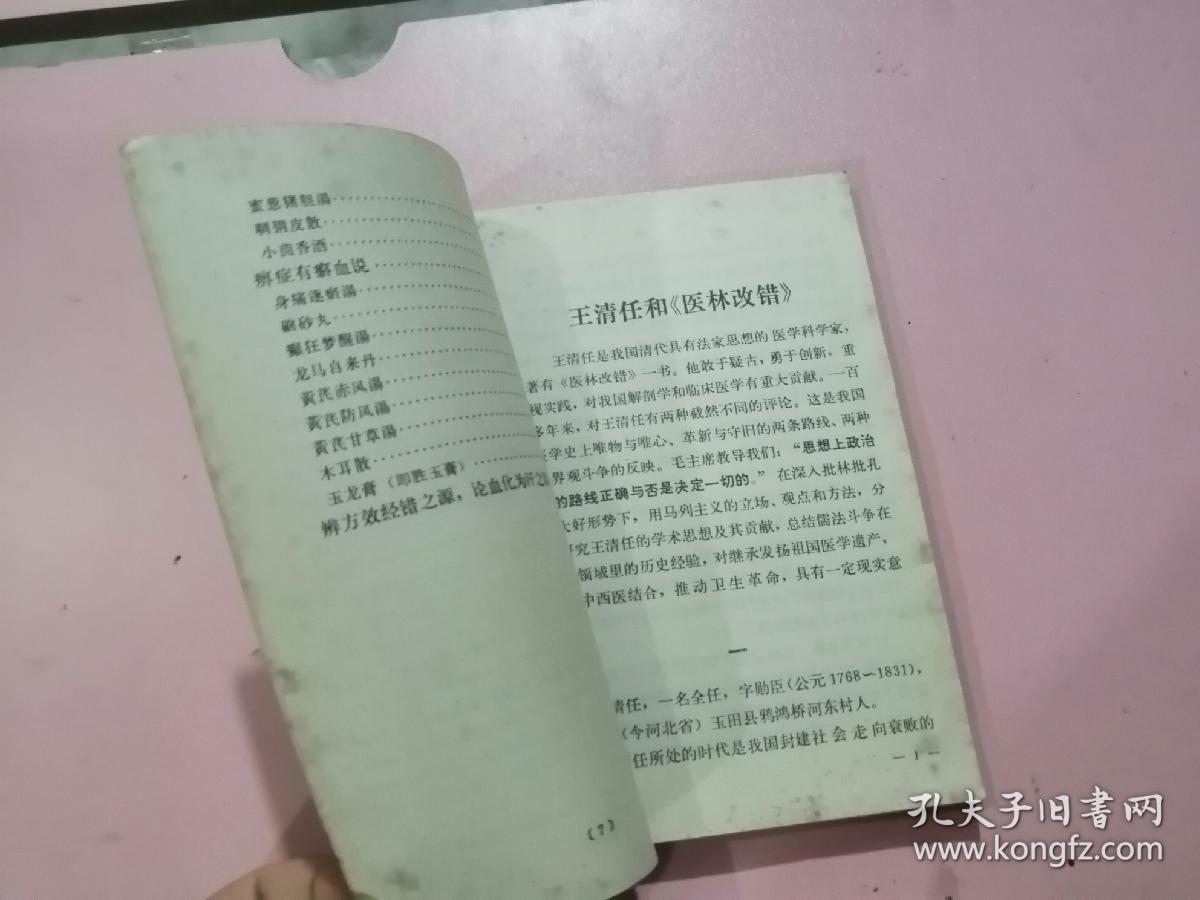 蜜葱猪胆湯
刺猬皮散
小茴香酒
痹症有瘀血说
身痛逐瘀湯
硇砂丸
癫狂梦醒湯
龙马自来丹
黃芪赤风湯
黃芪防风湯
黃芪甘草湯
木耳散
玉龙膏（即胜玉膏）
辨方效经错之源，论血化为汗之
〔7〕
王清任和《医林改错》
王清任是我国清代具有法家思想的医学科学家，
著有《医林改错》一书。他敢于疑古，勇于创新，重
视实践，对我国解剖学和临床医学有重大贡献。一百
多年来，对王清任有两种截然不同的评论。这是我国
医学史上唯物与唯心、革新与守旧的两条路线、两种
界观斗争的反映。毛主席教导我们：“思想上政治
的路线正确与否是决定一切的。”在深入批林批孔
大好形势下，用马列主义的立场、观点和方法，分
究王清任的学术思想及其贡献，总结儒法斗争在
领域里的历史经验，对继承发扬祖国医学遗产，
中西医结合，推动卫生革命，具有一定现实意
一
清任，一名全任，字勋臣（公元1768—1831），
（今河北省）玉田县鸦鸿桥河东村人。
任所处的时代是我国封建社会走向衰败的
— 1 —
孔夫子旧书网
www.kongfz.com